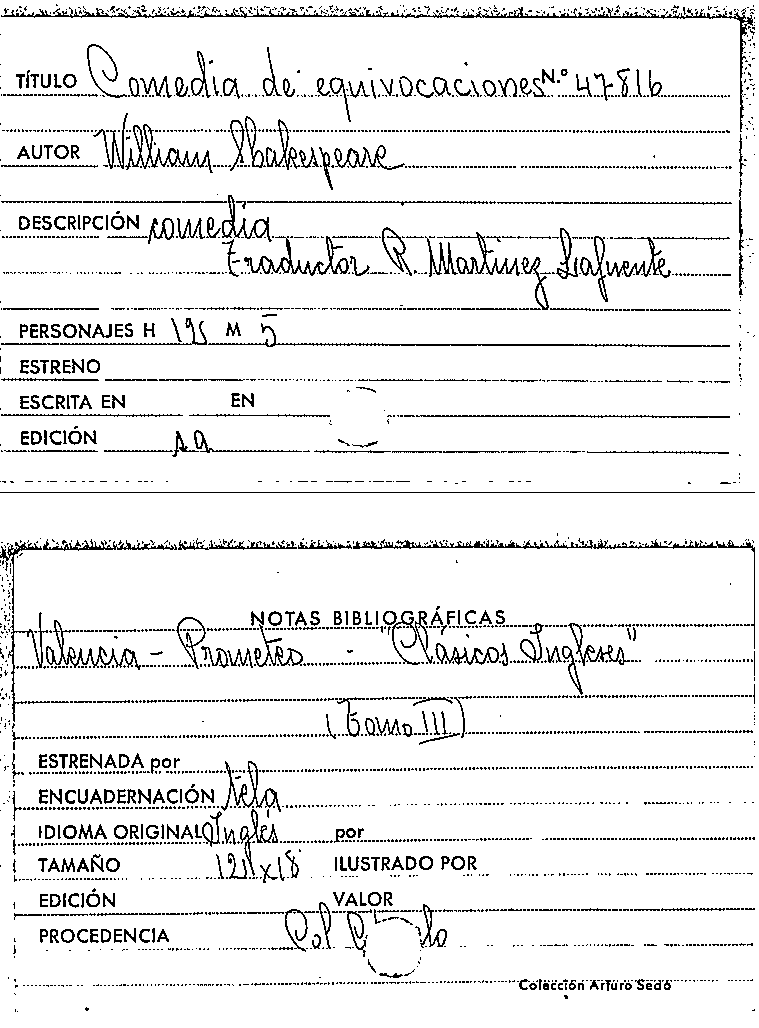 TÍTULO Comedia de equivocaciones N.º 47816
AUTOR William Shakespeare
DESCRIPCIÓN comedia
traductor R. Martinez Lafuente
PERSONAJES H M 5
ESTRENO
ESCRITA EN EN
EDICIÓN s a
NOTAS BIBLIOGRÁFICAS
Valencia - Prometeo - "Clásicos Ingleses"
(Tomo III)
ESTRENADA por
ENCUADERNACIÓN tela
IDIOMA ORIGINAL Inglés por
TAMAÑO ILUSTRADO POR
EDICIÓN VALOR
PROCEDENCIA Col
Colección Arturo Sedó